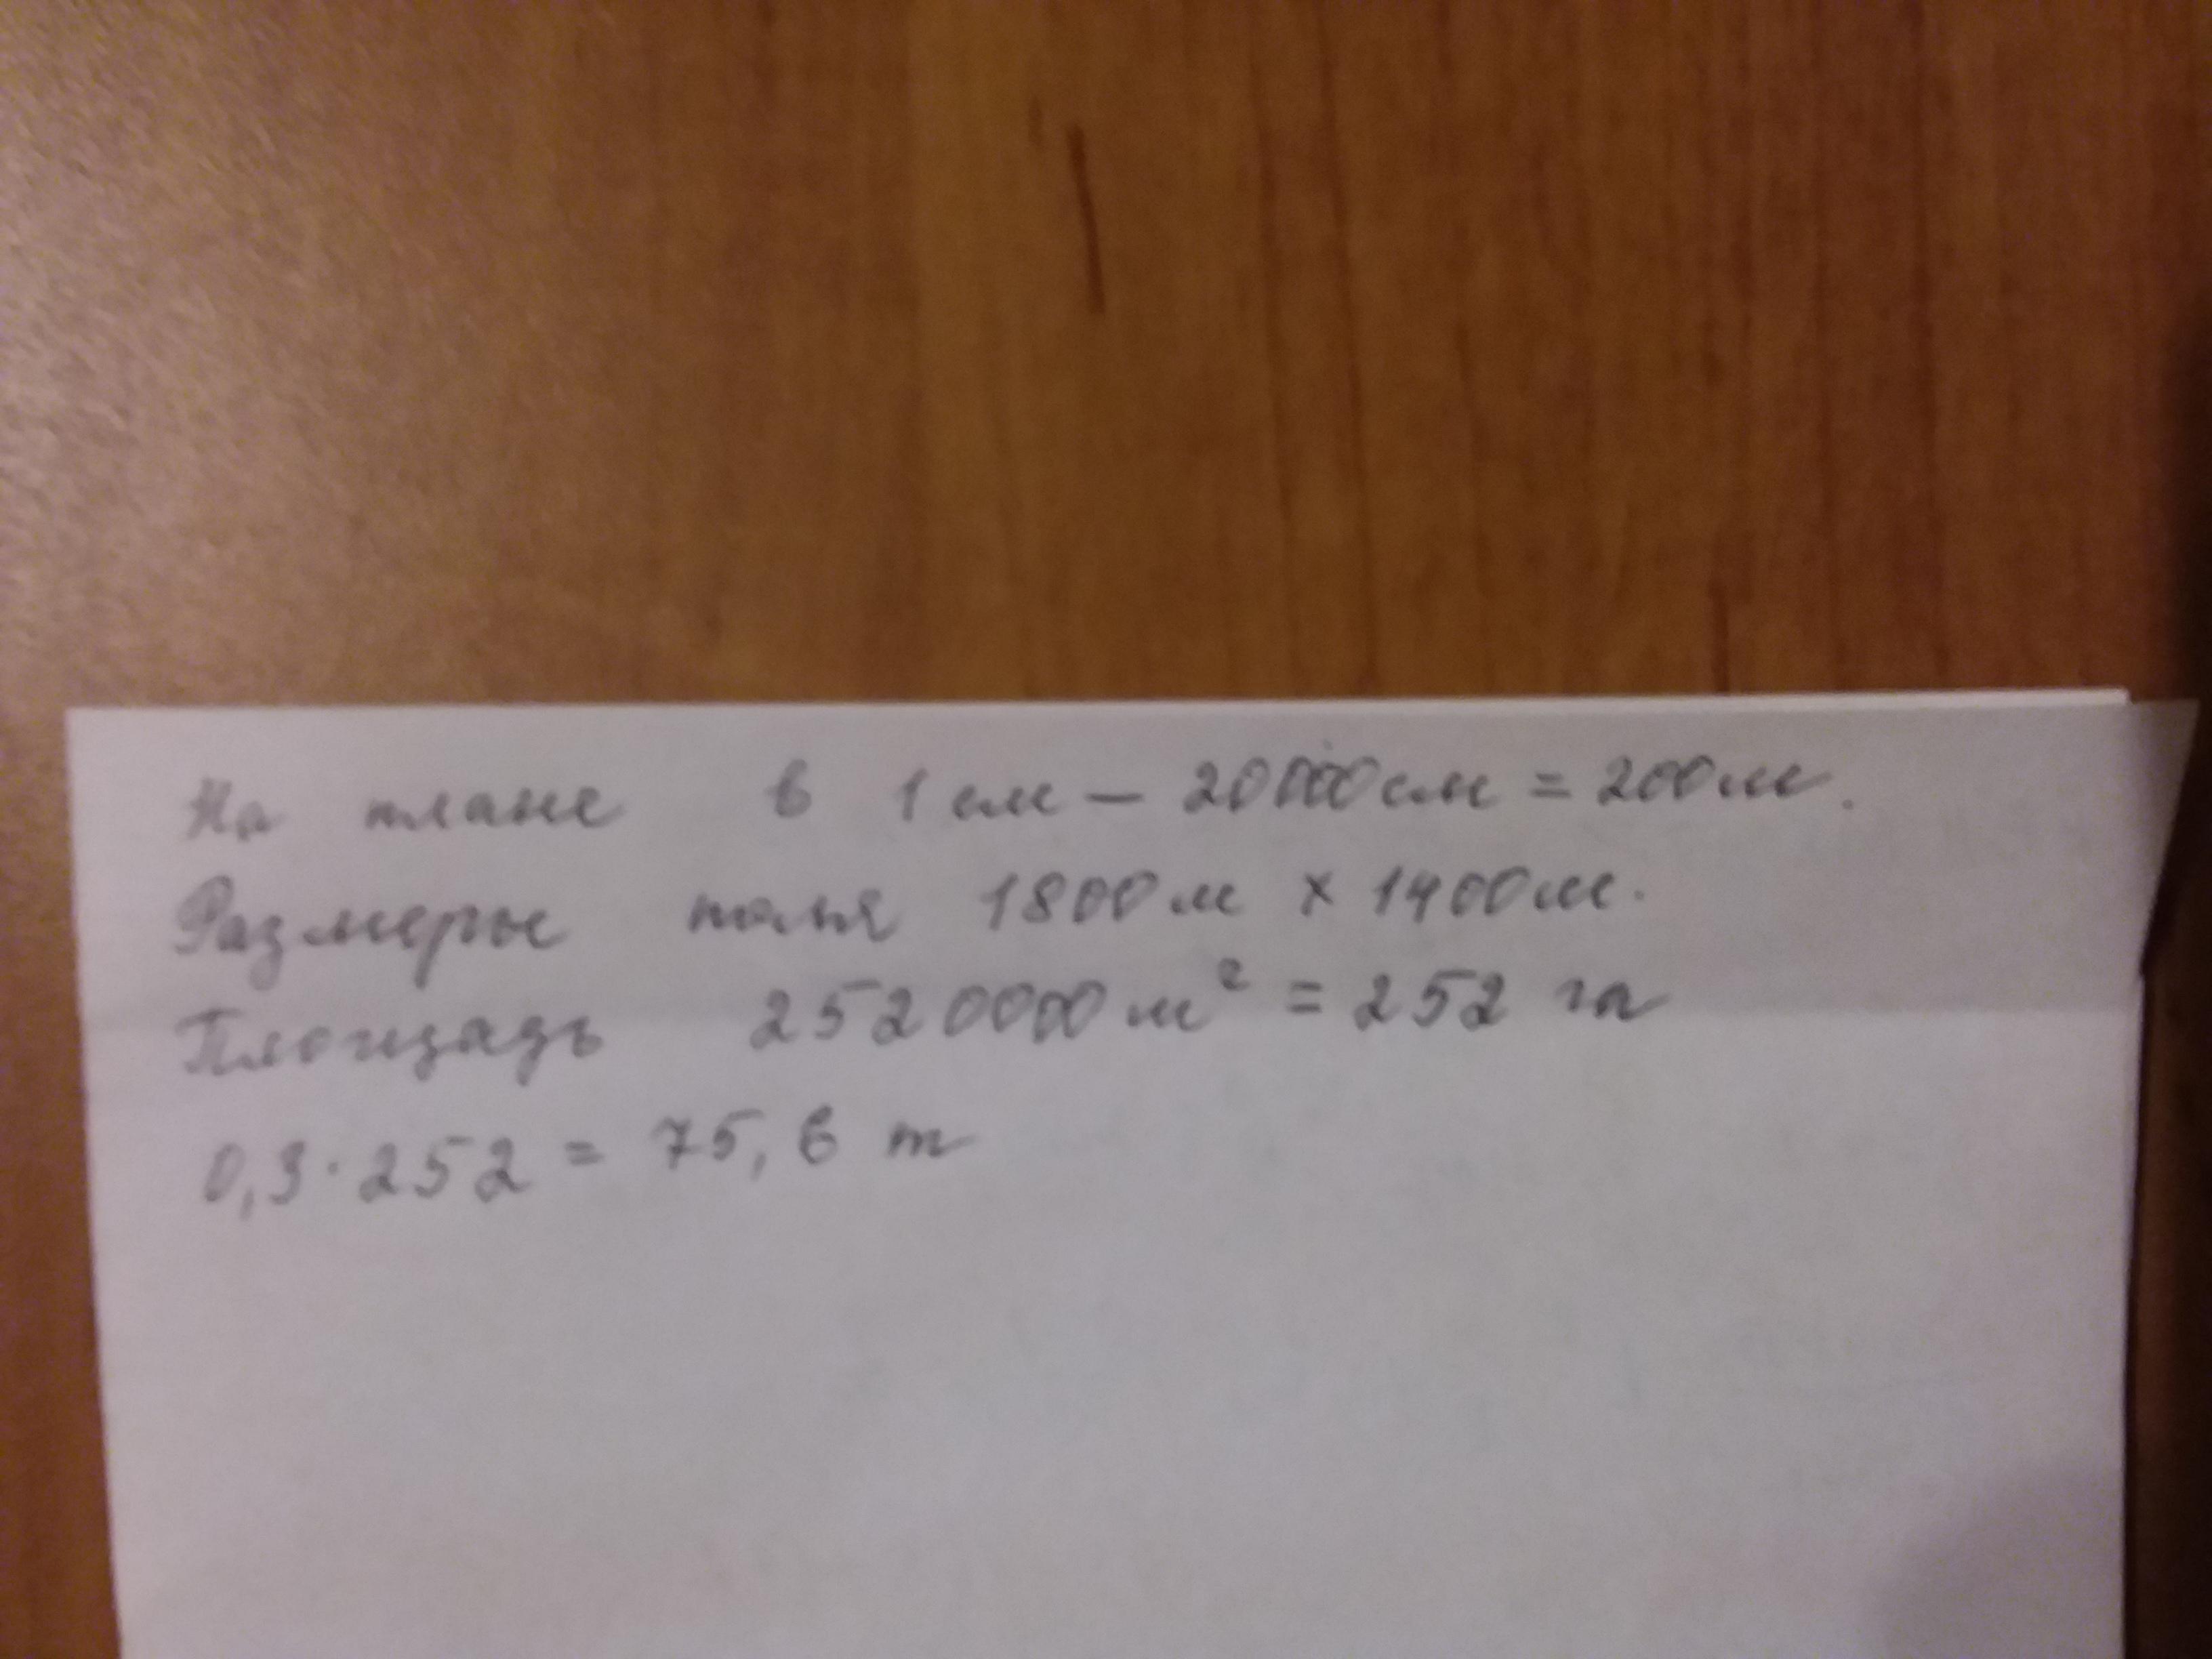 На плане в 1 см — 20000см = 200м.
Размеры поля 1800м х 1400м.
Площадь 2520000м² = 252 га
0,3·252 = 75,6 т